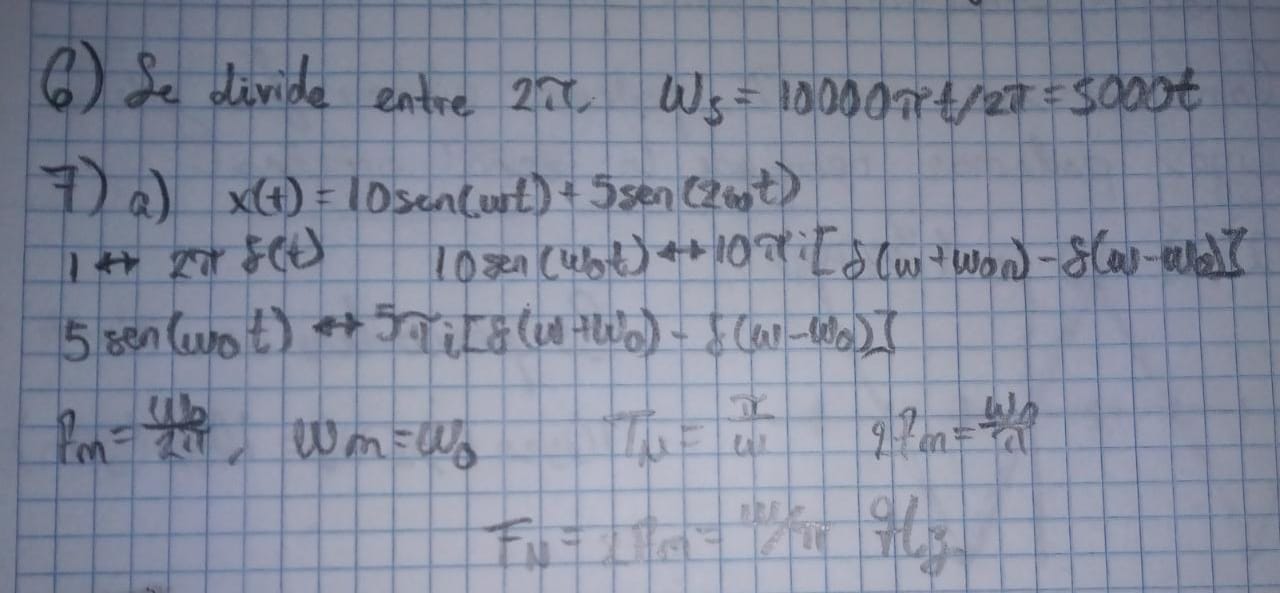 6) Se divide entre 2π. Ws = 10000πt/2π = 5000t
7) a) x(t) = 10sen(wt) + 5sen(2wt)
1 ↔ 2π δ(t) 10 sen(w0t) ↔ 10πi[δ(w+w0) - δ(w-w0)]
5 sen(w0t) ↔ 5πi[δ(w+w0) - δ(w-w0)]
fm = w0/2π, wm = w0 TN = π/w 2fm = w0/π
FN = 2fm = w/π Hz.